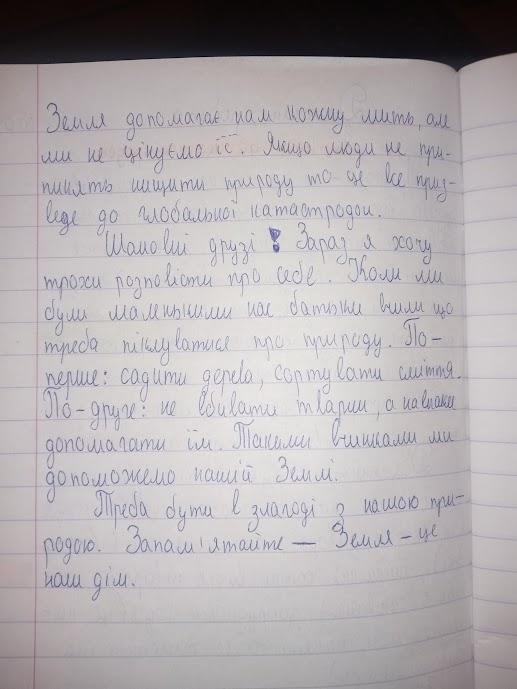 Земля допомагає нам кожну мить, але
ми не цінуємо її. Якщо люди не при-
пинять нищити природу то це все приз-
веде до глобальної катастрофи.
Шановні друзі! Зараз я хочу
трохи розповісти про себе. Коли ми
були маленькими нас батьки вчили що
треба піклуватися про природу. По-
перше: садити дерева, сортувати сміття.
По-друге: не вбивати тварин, а навпаки
допомагати їм. Такими вчинками ми
допоможемо нашій Землі.
Треба бути в злагоді з нашою при-
родою. Запам'ятайте — Земля – це
наш дім.